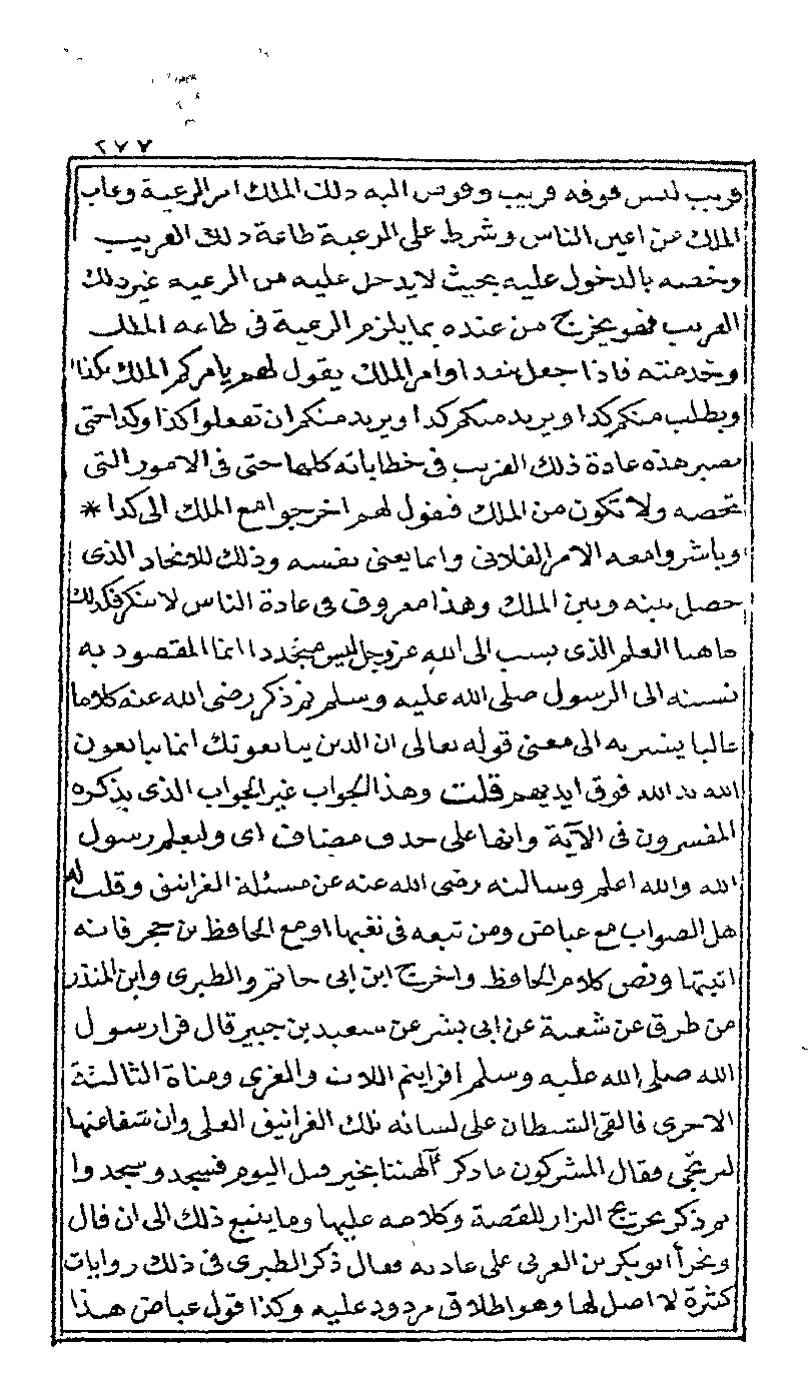 ٢٧٧
قريب ليس فوقه قريب وفوض اليه ذلك الملك امر الرعية وغاب
الملك عن اعين الناس وشرط على الرعية طاعة ذلك القريب
وخصه بالدخول عليه بحيث لا يدخل عليه من الرعية غير ذلك
القريب فهو يخرج من عنده بما يلزم الرعية فى طاعة الملك
وخدمته فاذا جعل ينفذ اوامر الملك يقول لهم يامركم الملك بكذا
ويطلب منكم كذا ويريد منكم كذا ويريد منكم ان تفعلوا كذا وكذا حتى
تصير هذه عادة ذلك القريب فى خطاباته كلها حتى فى الامور التى
تخصه ولا تكون من الملك فيقول لهم اخرجوا مع الملك الى كذا *
وباشروا معه الامر الفلانى وانما يعنى نفسه وذلك للاتحاد الذى
حصل بينه وبين الملك وهذا معروف فى عادة الناس لا ينكر فكذلك
هاهنا العلم الذى ينسب الى الله عز وجل ليس متجددا انما المقصود به
نسبته الى الرسول صلى الله عليه وسلم ثم ذكر رضى الله عنه كلاما
عاليا يشير به الى معنى قوله تعالى ان الذين يبايعونك انما يبايعون
الله يد الله فوق ايديهم قلت وهذا الجواب غير الجواب الذى يذكره
المفسرون فى الآية وانها على حذف مضاف اى وليعلم رسول
الله والله اعلم وسالته رضى الله عنه عن مسئلة الغرانيق وقلت له
هل الصواب مع عياض ومن تبعه فى نفيها او مع الحافظ بن حجر فانه
اثبتها ونص كلام الحافظ واخرج ابن ابى حاتم والطبرى وابن المنذر
من طرق عن شعبة عن ابى بشر عن سعيد بن جبير قال قرا رسول
الله صلى الله عليه وسلم افرايتم اللات والعزى ومناة الثالثة
الاخرى فالقى الشيطان على لسانه تلك الغرانيق العلى وان شفاعتها
لترتجى فقال المشركون ما ذكر آلهتنا بخير قبل اليوم فسجد وسجدوا
ثم ذكر تخريج البزار للقصة وكلامه عليها وما يتبع ذلك الى ان قال
وتجرأ ابو بكر بن العربى على عادته فقال ذكر الطبرى فى ذلك روايات
كثيرة لا اصل لها وهو اطلاق مردود عليه وكذا قول عياض هذا